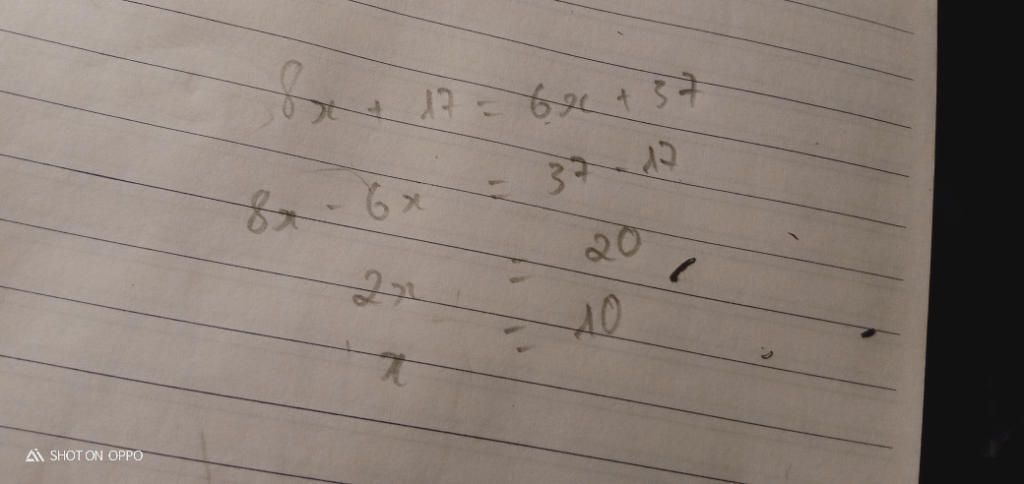 8x + 17 = 6x + 37
8x - 6x = 37 - 17
2x = 20
x = 10
SHOT ON OPPO